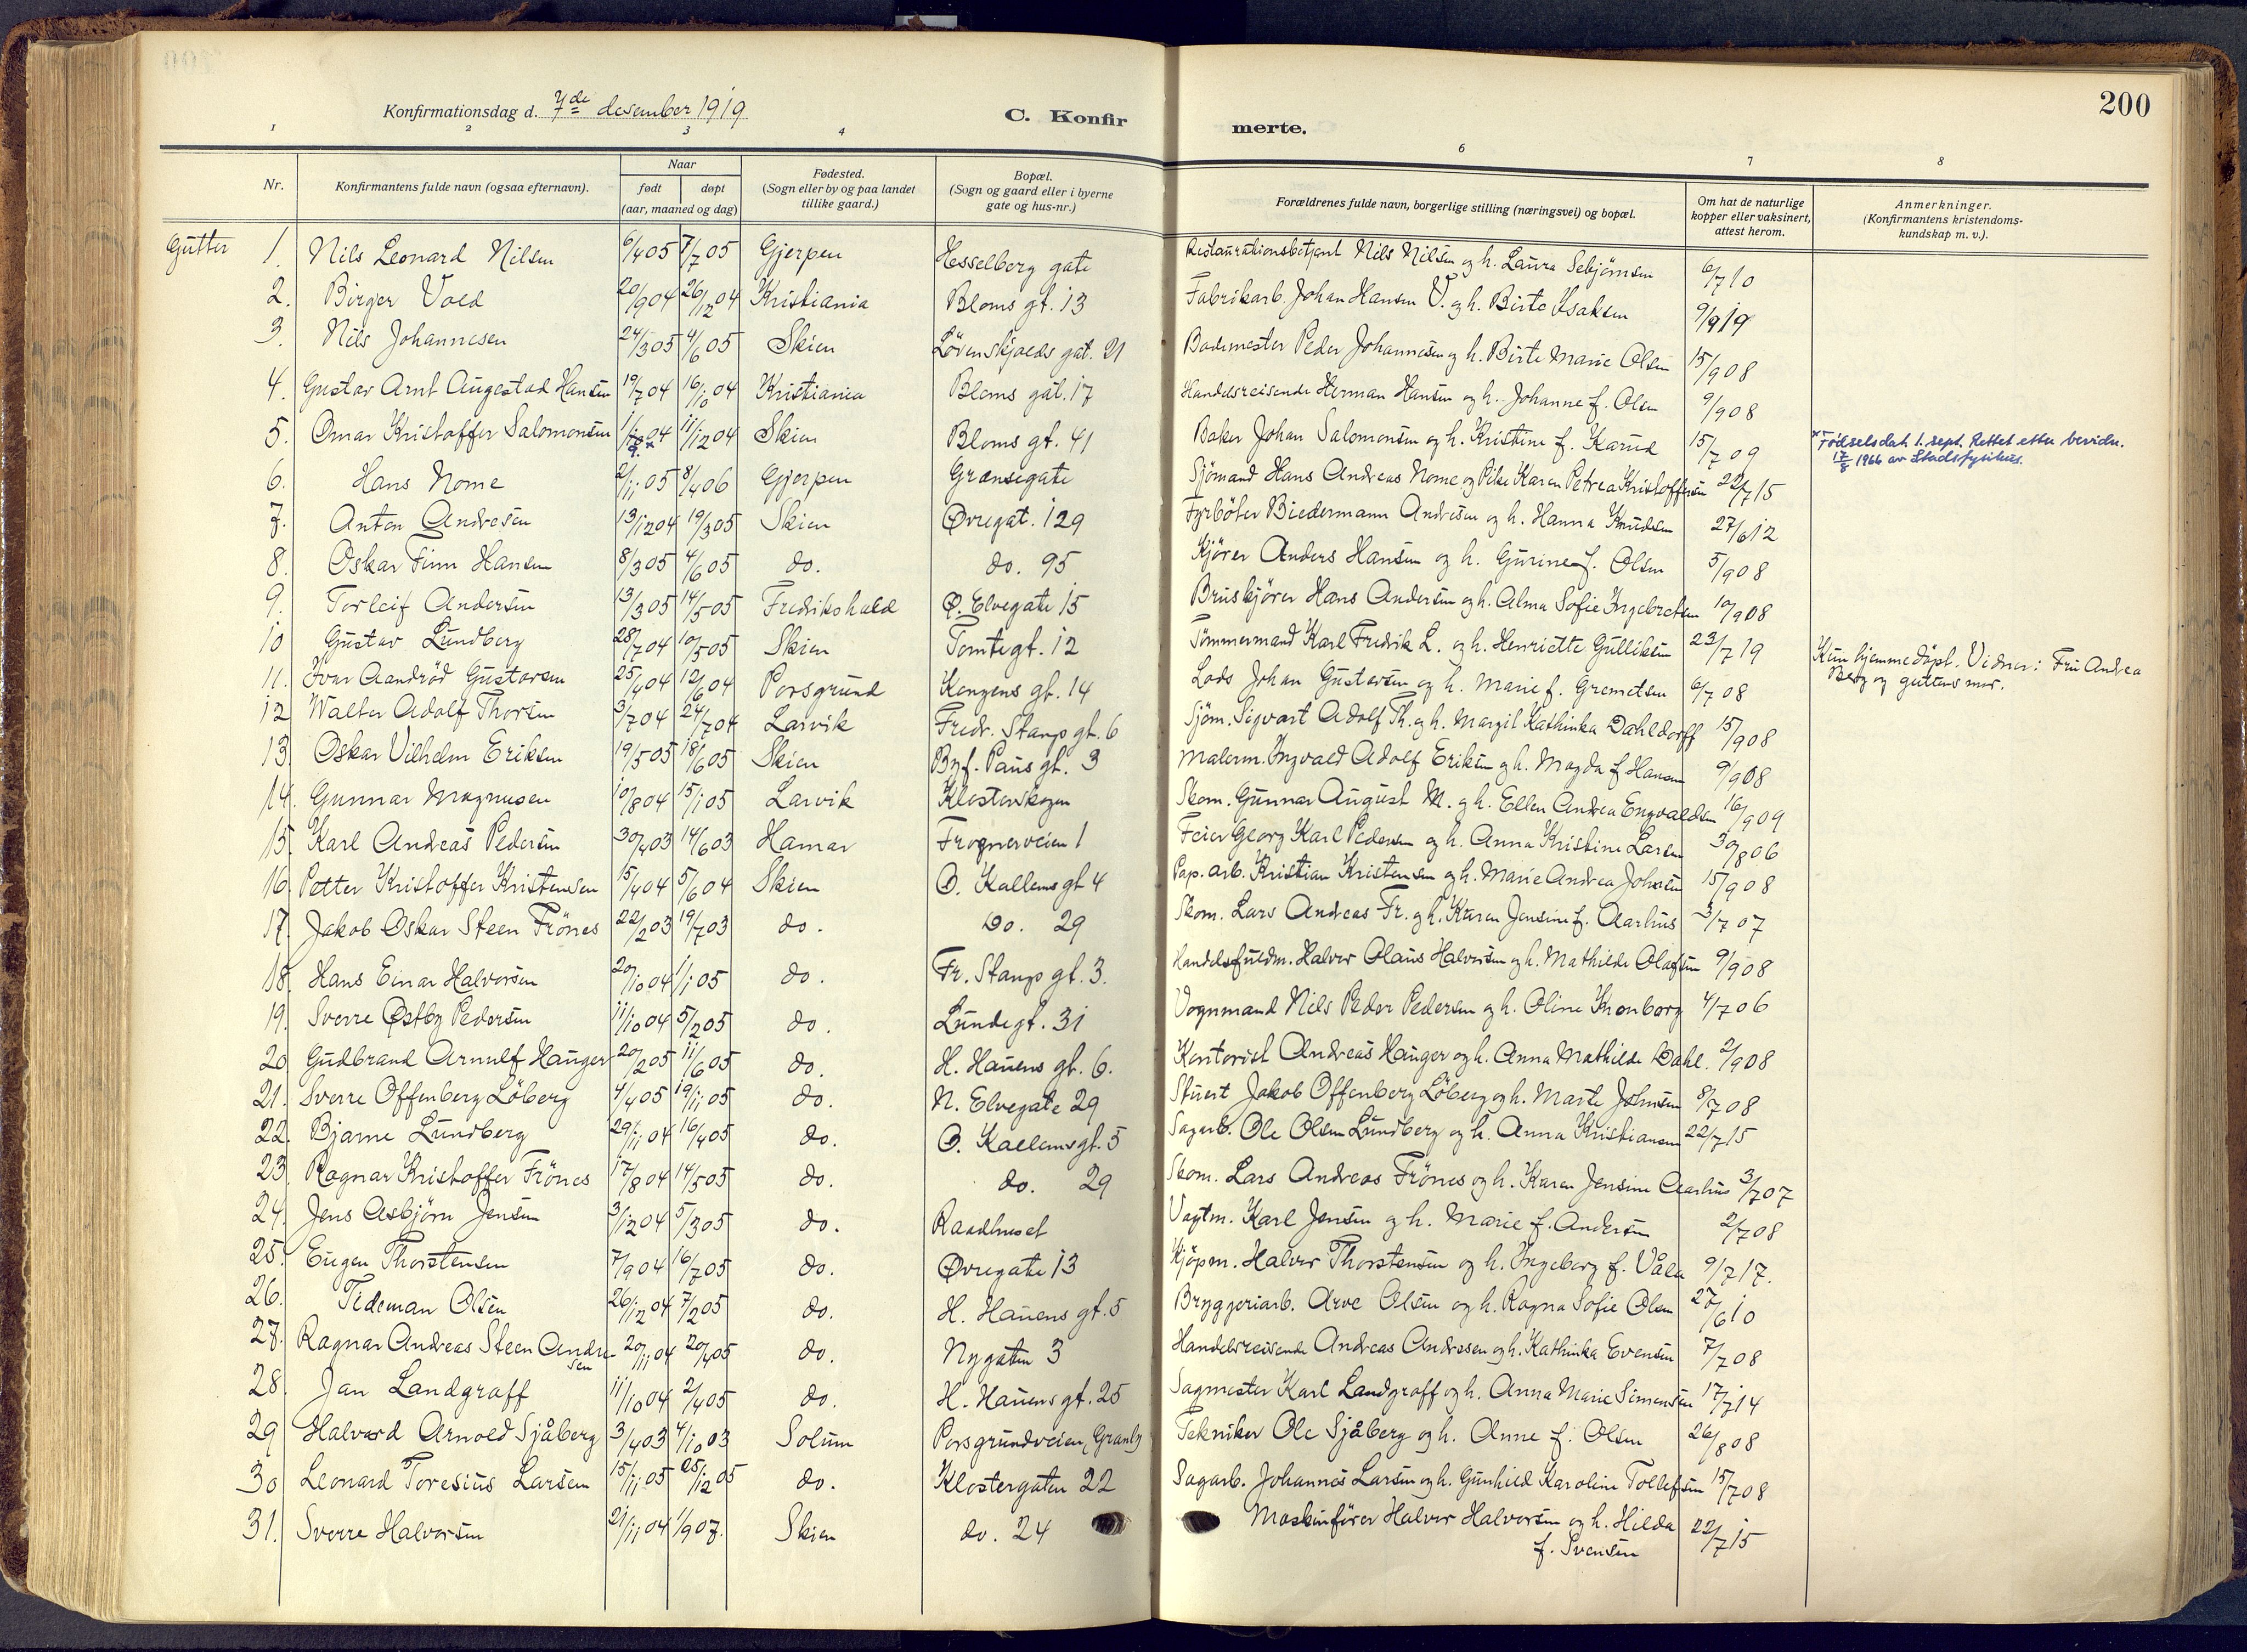 200
Konfirmationsdag d. 7de desember 1919
C. Konfir
merte.
1 2 3 4 6 7 8
Nr.
Konfirmantens fulde navn (ogsaa efternavn).
Naar
født døpt
(aar, maaned og dag)
Fødested.
(Sogn eller by og paa landet
tillike gaard.)
Bopæl.
(Sogn og gaard eller i byerne
gate og hus-nr.)
Forældrenes fulde navn, borgerlige stilling (næringsvei) og bopæl.
Om hat de naturlige
kopper eller vaksinert,
attest herom.
Anmerkninger.
(Konfirmantens kristendoms-
kundskap m. v.).
Gutter 1. Nils Leonard Nilsen 6/4 05 7/7 05 Gjerpen Hesselberg gate Restaurationsbetjent Nils Nilsen og h. Laura Sebjørnsen 6/7 10
2. Birger Vold 20/9 04 26/12 04 Kristiania Bloms gt. 13 Fabrikarb. Johan Hansen V. og h. Birte Isaksen 9/9 19
3. Nils Johannesen 24/3 05 4/6 05 Skien Lövenskjolds gat. 21 Bademester Peder Johannesen og h. Birte Marie Olsen 15/9 08
4. Gustav Arnt Augestad Hansen 19/7 04 16/10 04 Kristiania Bloms gat. 17 Handelsreisende Herman Hansen og h. Johanne f. Olsen 9/9 08
5. Omar Kristoffer Salomonsen 1/9 04 11/12 04 Skien Bloms gt. 41 Baker Johan Salomonsen og h. Kristine f. Karud 15/7 09 * Fødselsdat. 1. sept. Rettet etter bevidn.
17/8 1966 av Stadsfysikus.
6. Hans Nome 2/11 05 8/4 06 Gjerpen Grænsegate Sjömand Hans Andreas Nome og Pike Karen Petrea Kristoffersen 22/7 15
7. Anton Andresen 13/12 04 19/3 05 Skien Øvregat. 129 Fyrböter Biedermann Andresen og h. Hanna Knudsen 27/6 12
8. Oskar Finn Hansen 8/3 05 4/6 05 do. do. 95 Kjörer Anders Hansen og h. Gurine f. Olsen 5/9 08
9. Torleif Andersen 13/3 05 14/5 05 Fredrikshald Ø. Elvegate 15 Bruskjörer Hans Andersen og h. Alma Sofie Ingebretsen 10/9 08
10 Gustav Lundberg 28/7 04 10/5 05 Skien Tomtegt. 12 Tömmermand Karl Fredrik L. og h. Henriette Gulliksen 23/7 19
11. Ivar Aandröd Gustavsen 25/4 04 12/6 04 Porsgrund Kongens gt. 14 Lods Johan Gustavsen og h. Marie f. Gremetsen 6/7 08 Kun hjemmedöpt. Vidner: Fru Andrea
Berg og guttens mor.
12 Walter Adolf Thorsen 3/7 04 24/7 04 Larvik Fredr. Stangs gt. 6 Sjöm. Sigvart Adolf Th. og h. Margit Kathinka Dahldorff 15/9 08
13. Oskar Vilhelm Eriksen 19/5 05 18/6 05 Skien Byf. Paus gt. 3 Malerm. Ingvald Adolf Eriksen og h. Magda f. Hansen 9/9 08
14. Gunnar Magnusen 10/8 04 15/1 05 Larvik Klosterskogen Skom. Gunnar August M. og h. Ellen Andrea Engvaldsen 16/9 09
15. Karl Andreas Pedersen 30/4 03 14/6 03 Hamar Frognerveien 1 Feier Georg Karl Pedersen og h. Anna Kristine Larsen 30/8 06
16. Petter Kristoffer Kristensen 15/4 04 5/6 04 Skien O. Kallems gt 4 Pap. arb. Kristian Kristensen og h. Marie Andrea Johnsen 15/9 08
17. Jakob Oskar Steen Frönes 22/2 03 19/7 03 do. Do. 29 Skom. Lars Andreas Fr. og h. Karen Jensine f. Aarhus 3/7 07
18. Hans Einar Halvorsen 20/10 04 1/1 05 do. Fr. Stangs gt. 3. Handelsfuldm. Halvor Olaus Halvorsen og h. Mathilde Olafsen 9/9 08
19. Sverre Østby Pedersen 11/10 04 5/2 05 do. Lundegt. 31 Vognmand Nils Peder Pedersen og h. Oline Kronborg 4/7 06
20 Gudbrand Arnulf Hauger 20/2 05 11/6 05 do. H. Hauens gt. 6. Kontorist Andreas Hauger og h. Anna Mathilde Dahl. 2/9 08
21. Sverre Offenberg Löberg 4/4 05 19/11 05 do. N. Elvegate 29 Stuert Jakob Offenberg Löberg og h. Marte Johnsen 8/7 08
22. Bjarne Lundberg 29/11 04 16/4 05 do. O. Kallemsgt. 5 Sagarb. Ole Olsen Lundberg og h. Anna Kristiansen 22/7 15
23. Ragnar Kristoffer Frönes 17/8 04 14/5 05 do. do. 29 Skom. Lars Andreas Frönes og h. Karen Jensine Aarhus 3/7 07
24. Jens Asbjörn Jensen 3/12 04 5/3 05 do. Raadhuset Vagtm. Karl Jensen og h. Marie f. Andersen 2/7 08
25. Eugen Thorstensen 7/9 04 16/7 05 do. Øvregate 13 Kjöpm. Halvor Thorstensen og h. Ingeborg f. Våla 9/7 17.
26. Tideman Olsen 26/12 04 7/2 05 do. H. Hauens gt. 5 Bryggeriarb. Arve Olsen og h. Ragna Sofie Olsen 27/6 10
27. Ragnar Andreas Steen Andre-
sen 20/11 04 20/4 05 do. Nygaten 3 Handelsreisende Andreas Andresen og h. Kathinka Evensen 7/7 08
28. Jan Landgraff 11/10 04 2/4 05 do. H. Hauens gt. 25 Sagmester Karl Landgraff og h. Anna Marie Simensen 17/7 14
29 Halvard Arnold Sjåberg 3/4 03 4/10 03 Solum Porsgrundveien, Granly Tekniker Ole Sjåberg og h. Anne f. Olsen 26/8 08
30 Leonard Toresius Larsen 15/11 05 25/12 05 do. Klostergaten 22 Sagarb. Johannes Larsen og h. Gunhild Karoline Tollefsen 15/7 08
31. Sverre Halvorsen 21/11 04 1/9 07. Skien do. 24 Maskinförer Halvor Halvorsen og h. Hilda
f. Svensen 22/7 15